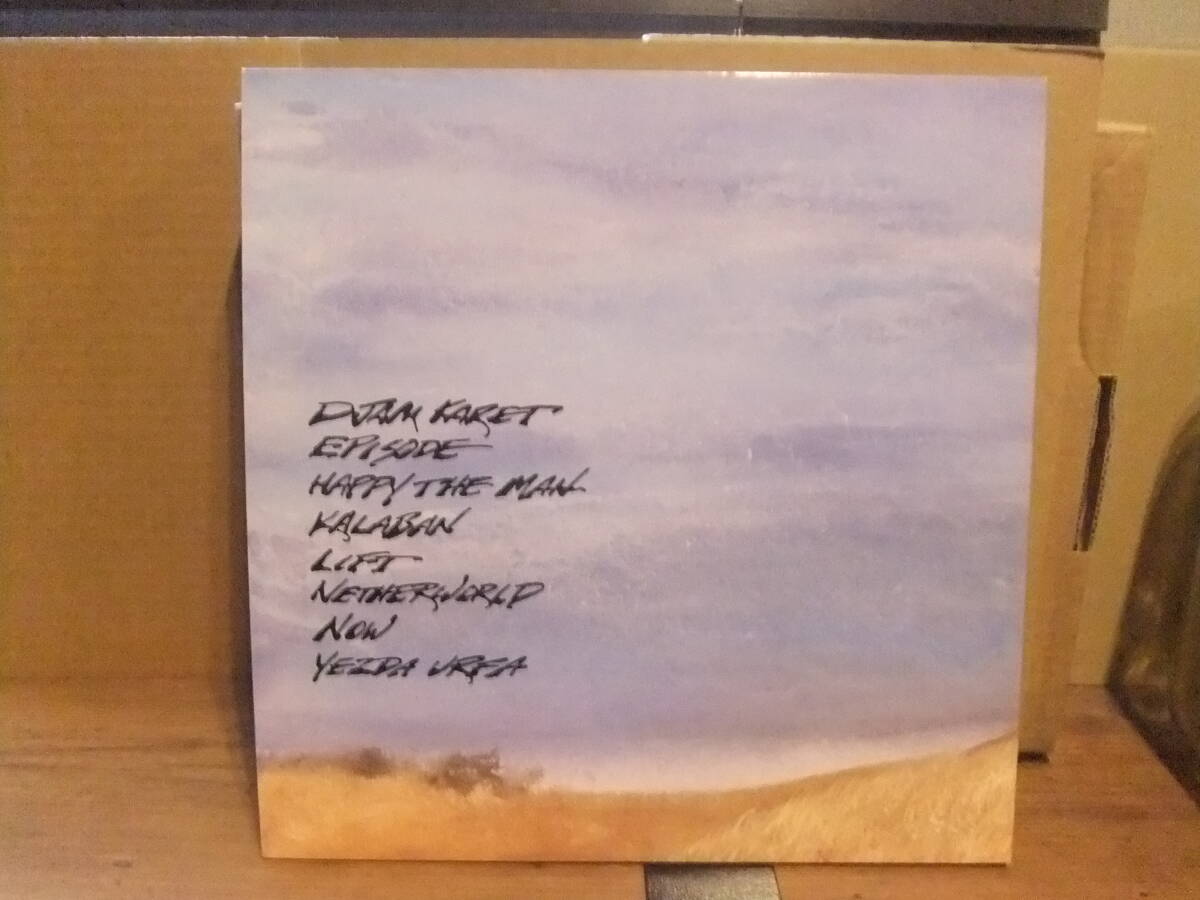 DJAM KARET
EPISODE
HAPPY THE MAN
KALABAN
LIFT
NETHERWORLD
NOW
YEZDA URFA